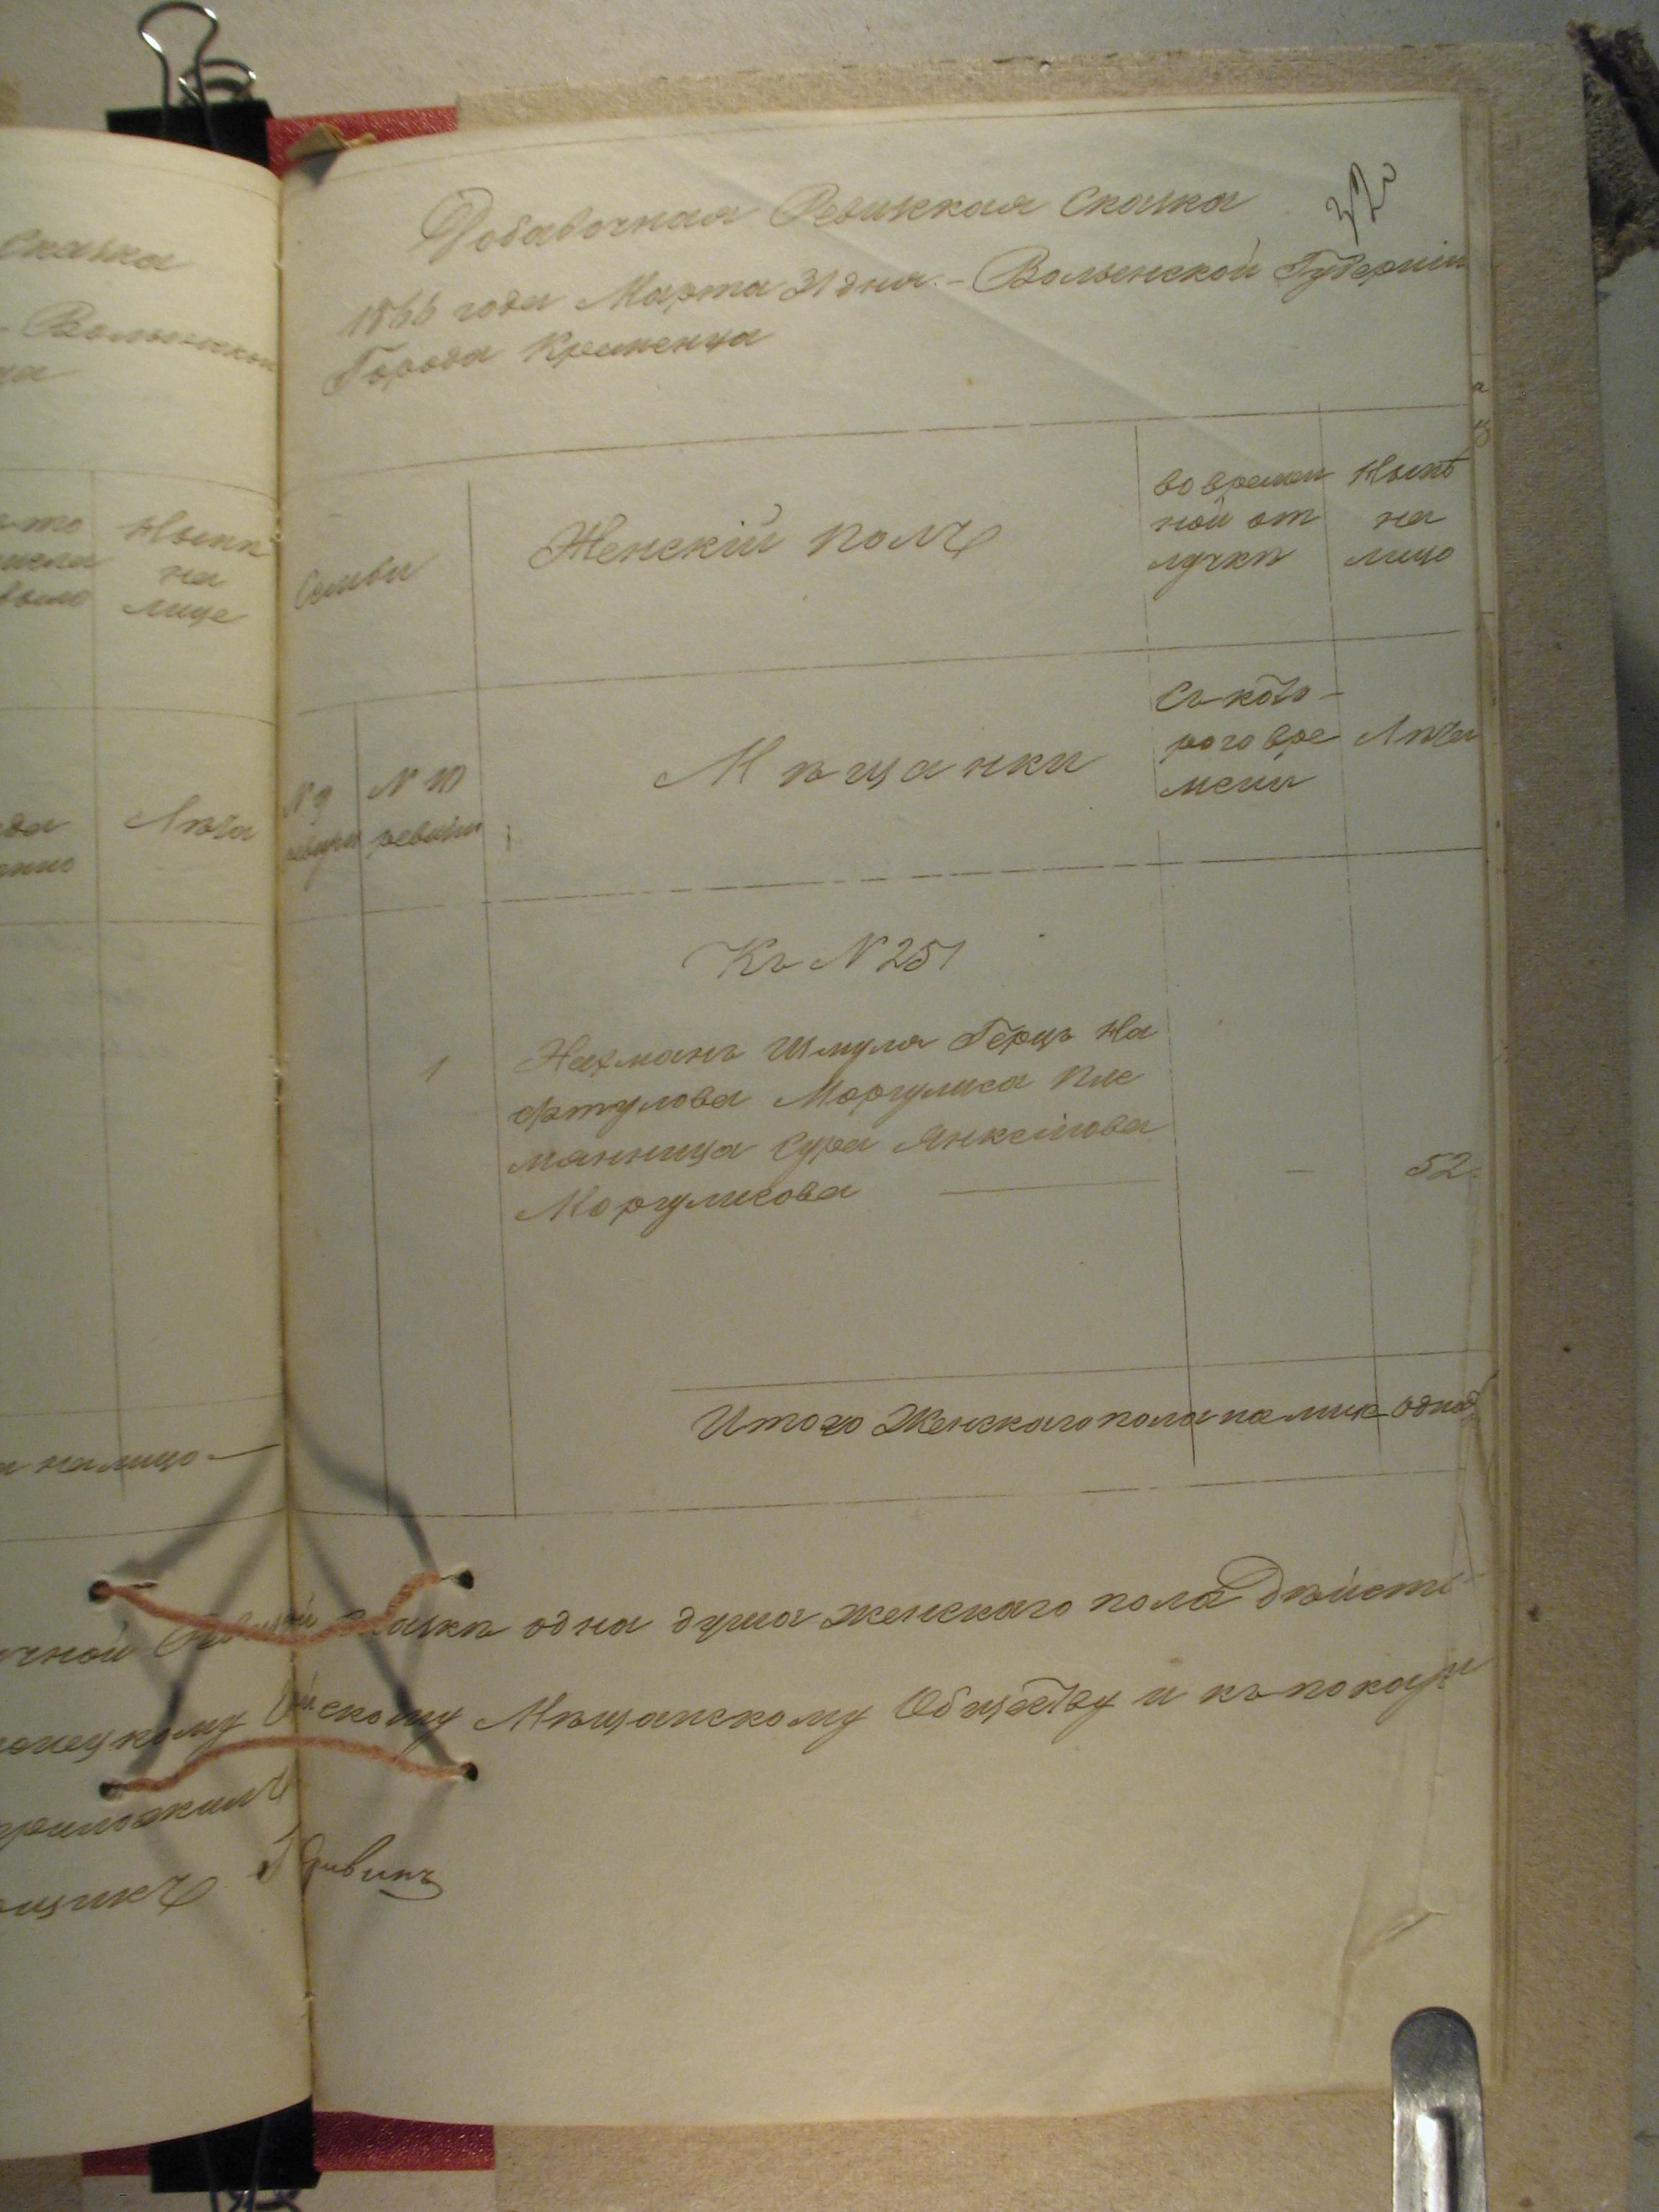 сказка
Волынской
ца
Нынѣ
на
лице
было
Лѣта
налицо —
Добавочная Ревизская Сказка
320
1866 года Марта 31 дня. – Волынской Губерніи
Города Кременца
Семьи
Женскій полъ
во времен
ной от
лучкѣ
Нынѣ
на
лицо
№ 9
ревизіи
№ 10
ревизіи
Мѣщанки
Съ кото-
рого вре
мени
Лѣта
Къ № 251
1
Нахманъ Шмуля Герцъ На
фтулова Моргулиса пле
мянница Сура Янкелiова
Моргулисова ——— — 52
Итого Женскаго пола на лицѣ одна
чной Ревизской Сказкѣ одна душа женскаго пола дѣйст
скому Мѣщанскому Обществу и къ показа
приложилъ
щикъ